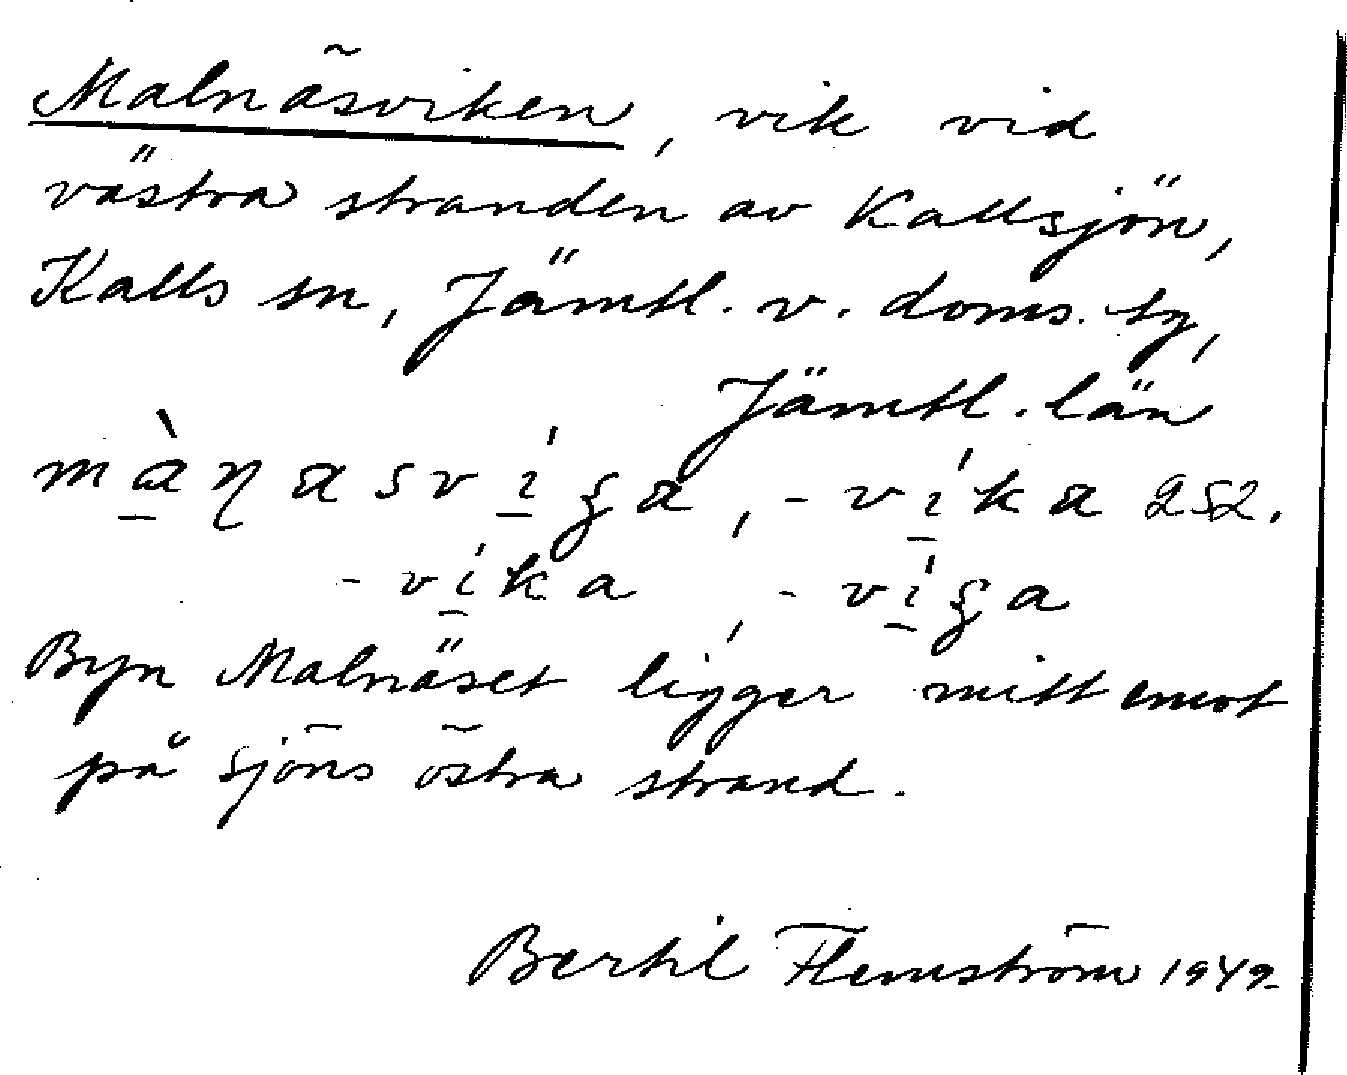 Malnäsviken, vik vid
västra stranden av Kallsjön,
Kalls sn, Jämtl. v. doms. tg,
Jämtl. län
Byn Malnäset ligger mitt emot
på sjöns östra strand.
Bertil Flemström 1949